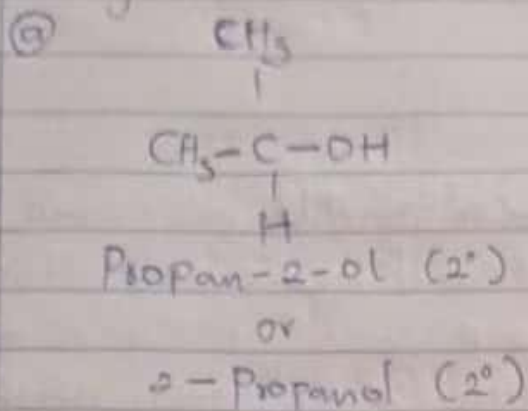 ⓐ CH₃
|
CH₃-C-OH
|
H
Propan-2-ol (2°)
or
2-Propanol (2°)